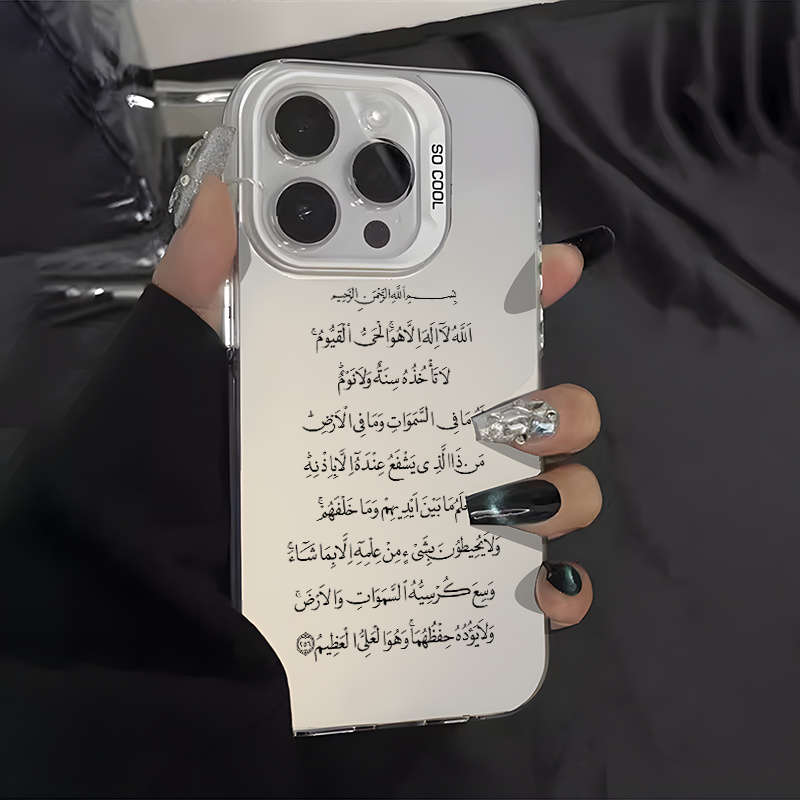 SO COOL
بِسْمِ اللّٰهِ الرَّحْمٰنِ الرَّحِيمِ
اَللّٰهُ لَآ اِلٰهَ اِلَّا هُوَۚ اَلْحَىُّ الْقَيُّومُۚ
لَا تَأْخُذُهُ سِنَةٌ وَلَا نَوْمٌۜ
مَا فِى السَّمٰوَاتِ وَمَا فِى الْاَرْضِۜ
مَنْ ذَا الَّذِى يَشْفَعُ عِنْدَهُٓ اِلَّا بِاِذْنِهِۜ
مَا بَيْنَ اَيْدِيهِمْ وَمَا خَلْفَهُمْۚ
وَلَا يُحِيطُونَ بِشَىْءٍ مِنْ عِلْمِهِٓ اِلَّا بِمَا شَٓاءَۚ
وَسِعَ كُرْسِيُّهُ السَّمٰوَاتِ وَالْاَرْضَۚ
وَلَا يَؤُدُهُ حِفْظُهُمَاۚ وَهُوَ الْعَلِىُّ الْعَظِيمُ ﴿٢٥٥﴾